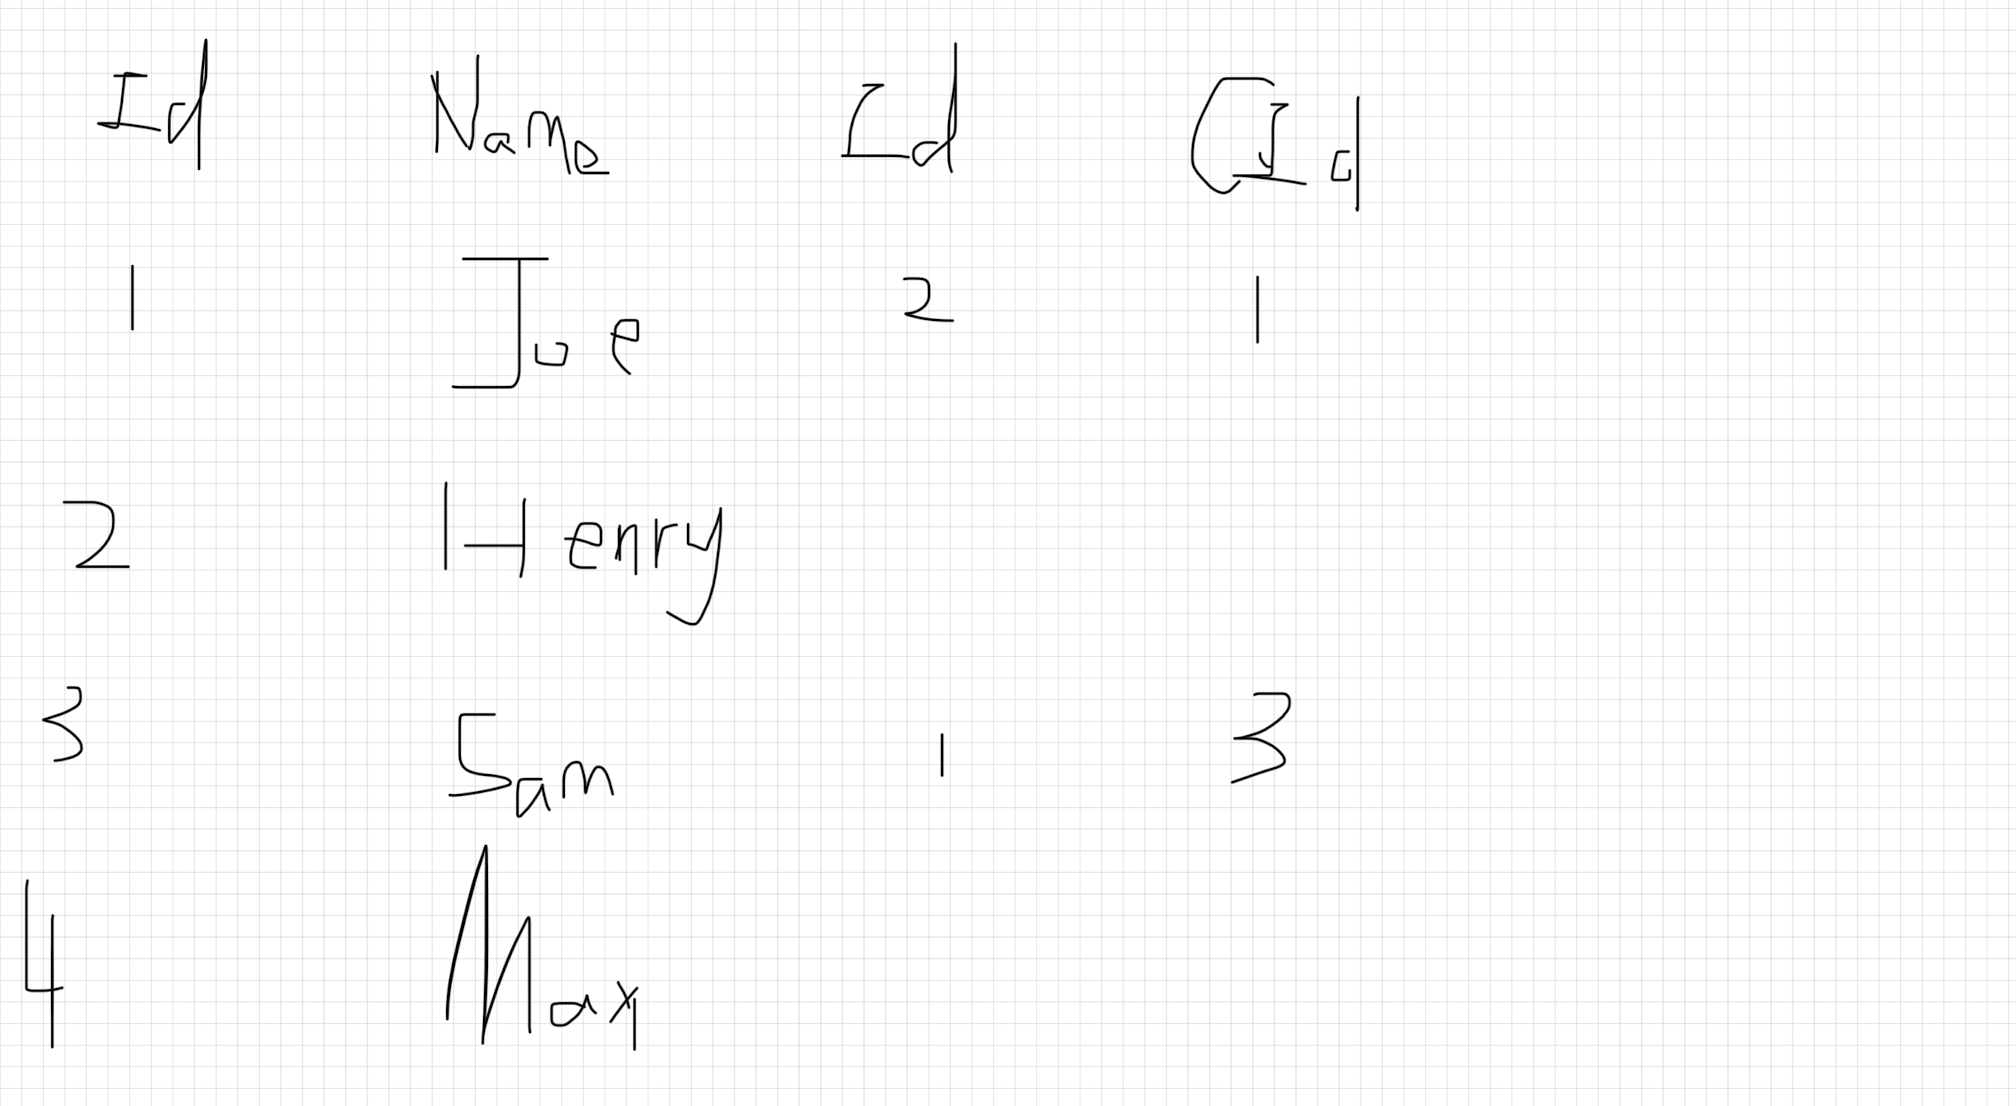 Id Name Id CId
1 Joe 2 1
2 Henry
3 Sam 1 3
4 Max